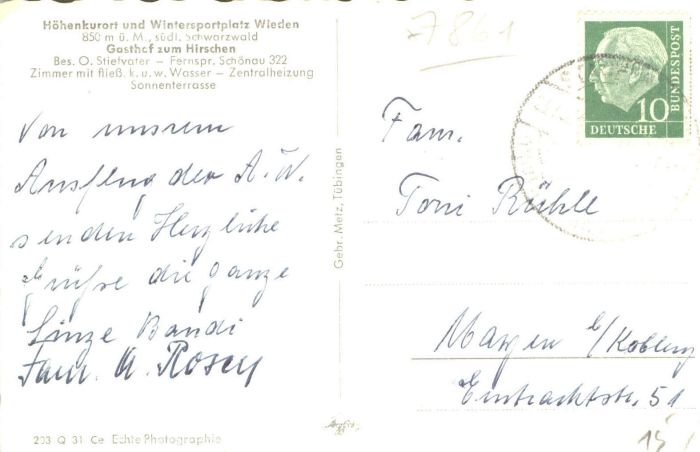 Höhenkurort und Wintersportplatz Wieden
850 m ü. M., südl. Schwarzwald
Gasthof zum Hirschen
Bes. O. Stiefvater – Fernspr. Schönau 322
Zimmer mit fließ. k. u. w. Wasser – Zentralheizung
Sonnenterrasse
Von unserem
Ausflug der A.W.
senden Herzliche
Grüße die ganze
Fam.
203 Q 31 Ce Echte Photographie
Gebr. Metz, Tübingen
7861
10
DEUTSCHE
BUNDESPOST
Fam.
Toni Rühle
b/Koblenz
Eintrachtstr. 51
15